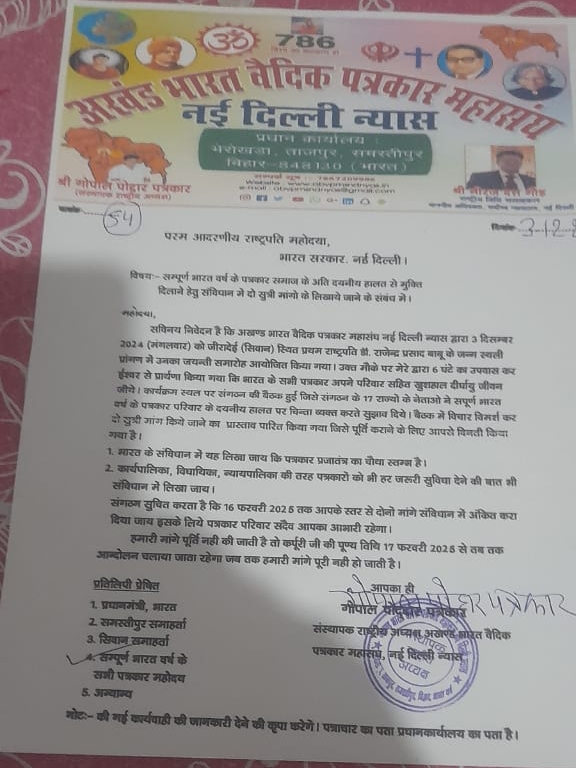 786
अखंड भारत वैदिक पत्रकार महासंघ
नई दिल्ली न्यास
प्रधान कार्यालय :
भेरोखड़ा, ताजपुर, समस्तीपुर
बिहार-848130 (भारत)
श्री गोपाल पोद्दार पत्रकार
(संस्थापक राष्ट्रीय अध्यक्ष)
54
दिनांक
3-12-2
परम आदरणीय राष्ट्रपति महोदया,
भारत सरकार. नई दिल्ली।
विषयः- सम्पूर्ण भारत वर्ष के पत्रकार समाज के अति दयनीय हालत से मुक्ति
दिलाने हेतु संविधान में दो सुत्री मांगो के लिखाये जाने के संबंध में।
महोदया,
सविनय निवेदन है कि अखण्ड भारत वैदिक पत्रकार महासंघ नई दिल्ली न्यास द्वारा 3 दिसम्बर
2024 (मंगलवार) को जीरादेई (सिवान) स्थित प्रथम राष्ट्रपति डॉ. राजेन्द्र प्रसाद बाबू के जन्म स्थली
प्रांगण में उनका जयन्ती समारोह आयोजित किया गया। उक्त मौके पर मेरे द्वारा 6 घंटे का उपवास कर
ईश्वर से प्रार्थणा किया गया कि भारत के सभी पत्रकार अपने परिवार सहित खुशहाल दीर्घायु जीवन
जीये। कार्यक्रम स्थल पर संगठन की बैठक हुई जिसे संगठन के 17 राज्यो के नेताओ ने सपूर्ण भारत
वर्ष के पत्रकार परिवार के दयनीय हालत पर चिन्ता व्यक्त करते सुझाव दिये। बैठक में विचार विमर्श कर
दो सुत्री मांग किये जाने का प्रास्ताव पारित किया गया जिसे पूर्ति कराने के लिए आपसे विनती किया
गया है।
1. भारत के संविधान में यह लिखा जाय कि पत्रकार प्रजातंत्र का चौथा स्तम्भ है।
2. कार्यपालिका, विधायिका, न्यायपालिका की तरह पत्रकारो को भी हर जरूरी सुविधा देने की बात भी
संविधान में लिखा जाय।
संगठन सुचित करता है कि 16 फरवरी 2025 तक आपके स्तर से दोनो मांगे संविधान में अंकित करा
दिया जाय इसके लिये पत्रकार परिवार सदैव आपका आभारी रहेगा।
हमारी मांगे पूर्ति नही की जाती है तो कर्पूरी जी की पूण्य तिथि 17 फरवरी 2025 से तब तक
आन्दोलन चलाया जाता रहेगा जब तक हमारी मांगे पूरी नही हो जाती है।
प्रतिलिपी प्रेषित
1. प्रधानमंत्री, भारत
2. समस्तीपुर समाहर्ता
3. सिवान समाहर्ता
4. सम्पूर्ण भारत वर्ष के
सभी पत्रकार महोदय
5. अन्यान्य
आपका ही
गोपाल पोद्दार पत्रकार
संस्थापक राष्ट्रीय अध्यक्ष अखण्ड भारत वैदिक
पत्रकार महासंघ, नई दिल्ली न्यास
अध्यक्ष
नोटः- की गई कार्यवाही की जानकारी देने की कृपा करेगे। पत्राचार का पता प्रधानकार्यालय का पता है।